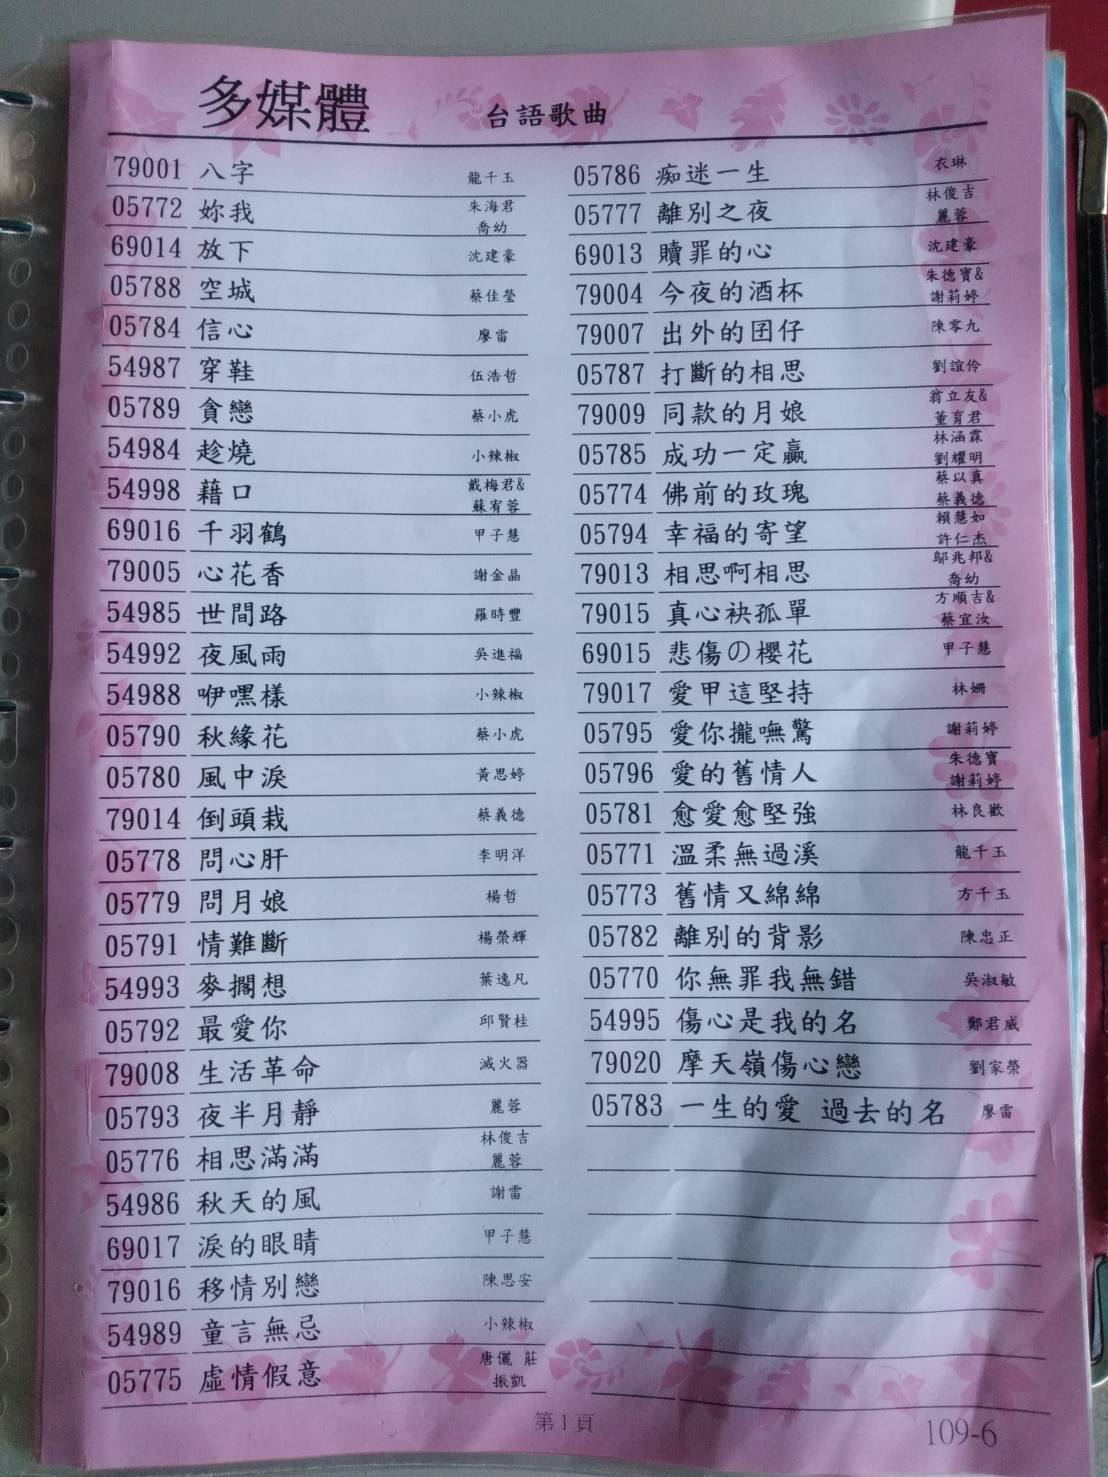 多媒體 台語歌曲
79001 八字 龍千玉
05772 妳我 朱海君 喬幼
69014 放下 沈建豪
05788 空城 蔡佳瑩
05784 信心 廖雷
54987 穿鞋 伍浩哲
05789 貪戀 蔡小虎
54984 趁燒 小辣椒
54998 藉口 戴梅君& 蘇宥蓉
69016 千羽鶴 甲子慧
79005 心花香 謝金晶
54985 世間路 羅時豐
54992 夜風雨 吳進福
54988 咿嘿樣 小辣椒
05790 秋緣花 蔡小虎
05780 風中淚 黃思婷
79014 倒頭栽 蔡義德
05778 問心肝 李明洋
05779 問月娘 楊哲
05791 情難斷 楊榮輝
54993 麥擱想 葉逸凡
05792 最愛你 邱賢桂
79008 生活革命 滅火器
05793 夜半月靜 麗蓉
05776 相思滿滿 林俊吉 麗蓉
54986 秋天的風 謝雷
69017 淚的眼睛 甲子慧
79016 移情別戀 陳思安
54989 童言無忌 小辣椒
05775 虛情假意 唐儷 莊振凱
05786 痴迷一生 衣琳
05777 離別之夜 林俊吉 麗蓉
69013 贖罪的心 沈建豪
79004 今夜的酒杯 朱德寶& 謝莉婷
79007 出外的囝仔 陳零九
05787 打斷的相思 劉誼伶
79009 同款的月娘 翁立友& 董育君
05785 成功一定贏 林涵霖 劉耀明
05774 佛前的玫瑰 蔡以真 蔡義德
05794 幸福的寄望 賴慧如 許仁杰
79013 相思啊相思 鄔兆邦& 喬幼
79015 真心袂孤單 方順吉& 蔡宜汝
69015 悲傷の櫻花 甲子慧
79017 愛甲這堅持 林姍
05795 愛你攏嘸驚 謝莉婷
05796 愛的舊情人 朱德寶 謝莉婷
05781 愈愛愈堅強 林良歡
05771 溫柔無過溪 龍千玉
05773 舊情又綿綿 方千玉
05782 離別的背影 陳忠正
05770 你無罪我無錯 吳淑敏
54995 傷心是我的名 鄭君威
79020 摩天嶺傷心戀 劉家榮
05783 一生的愛 過去的名 廖雷
第1頁
109-6